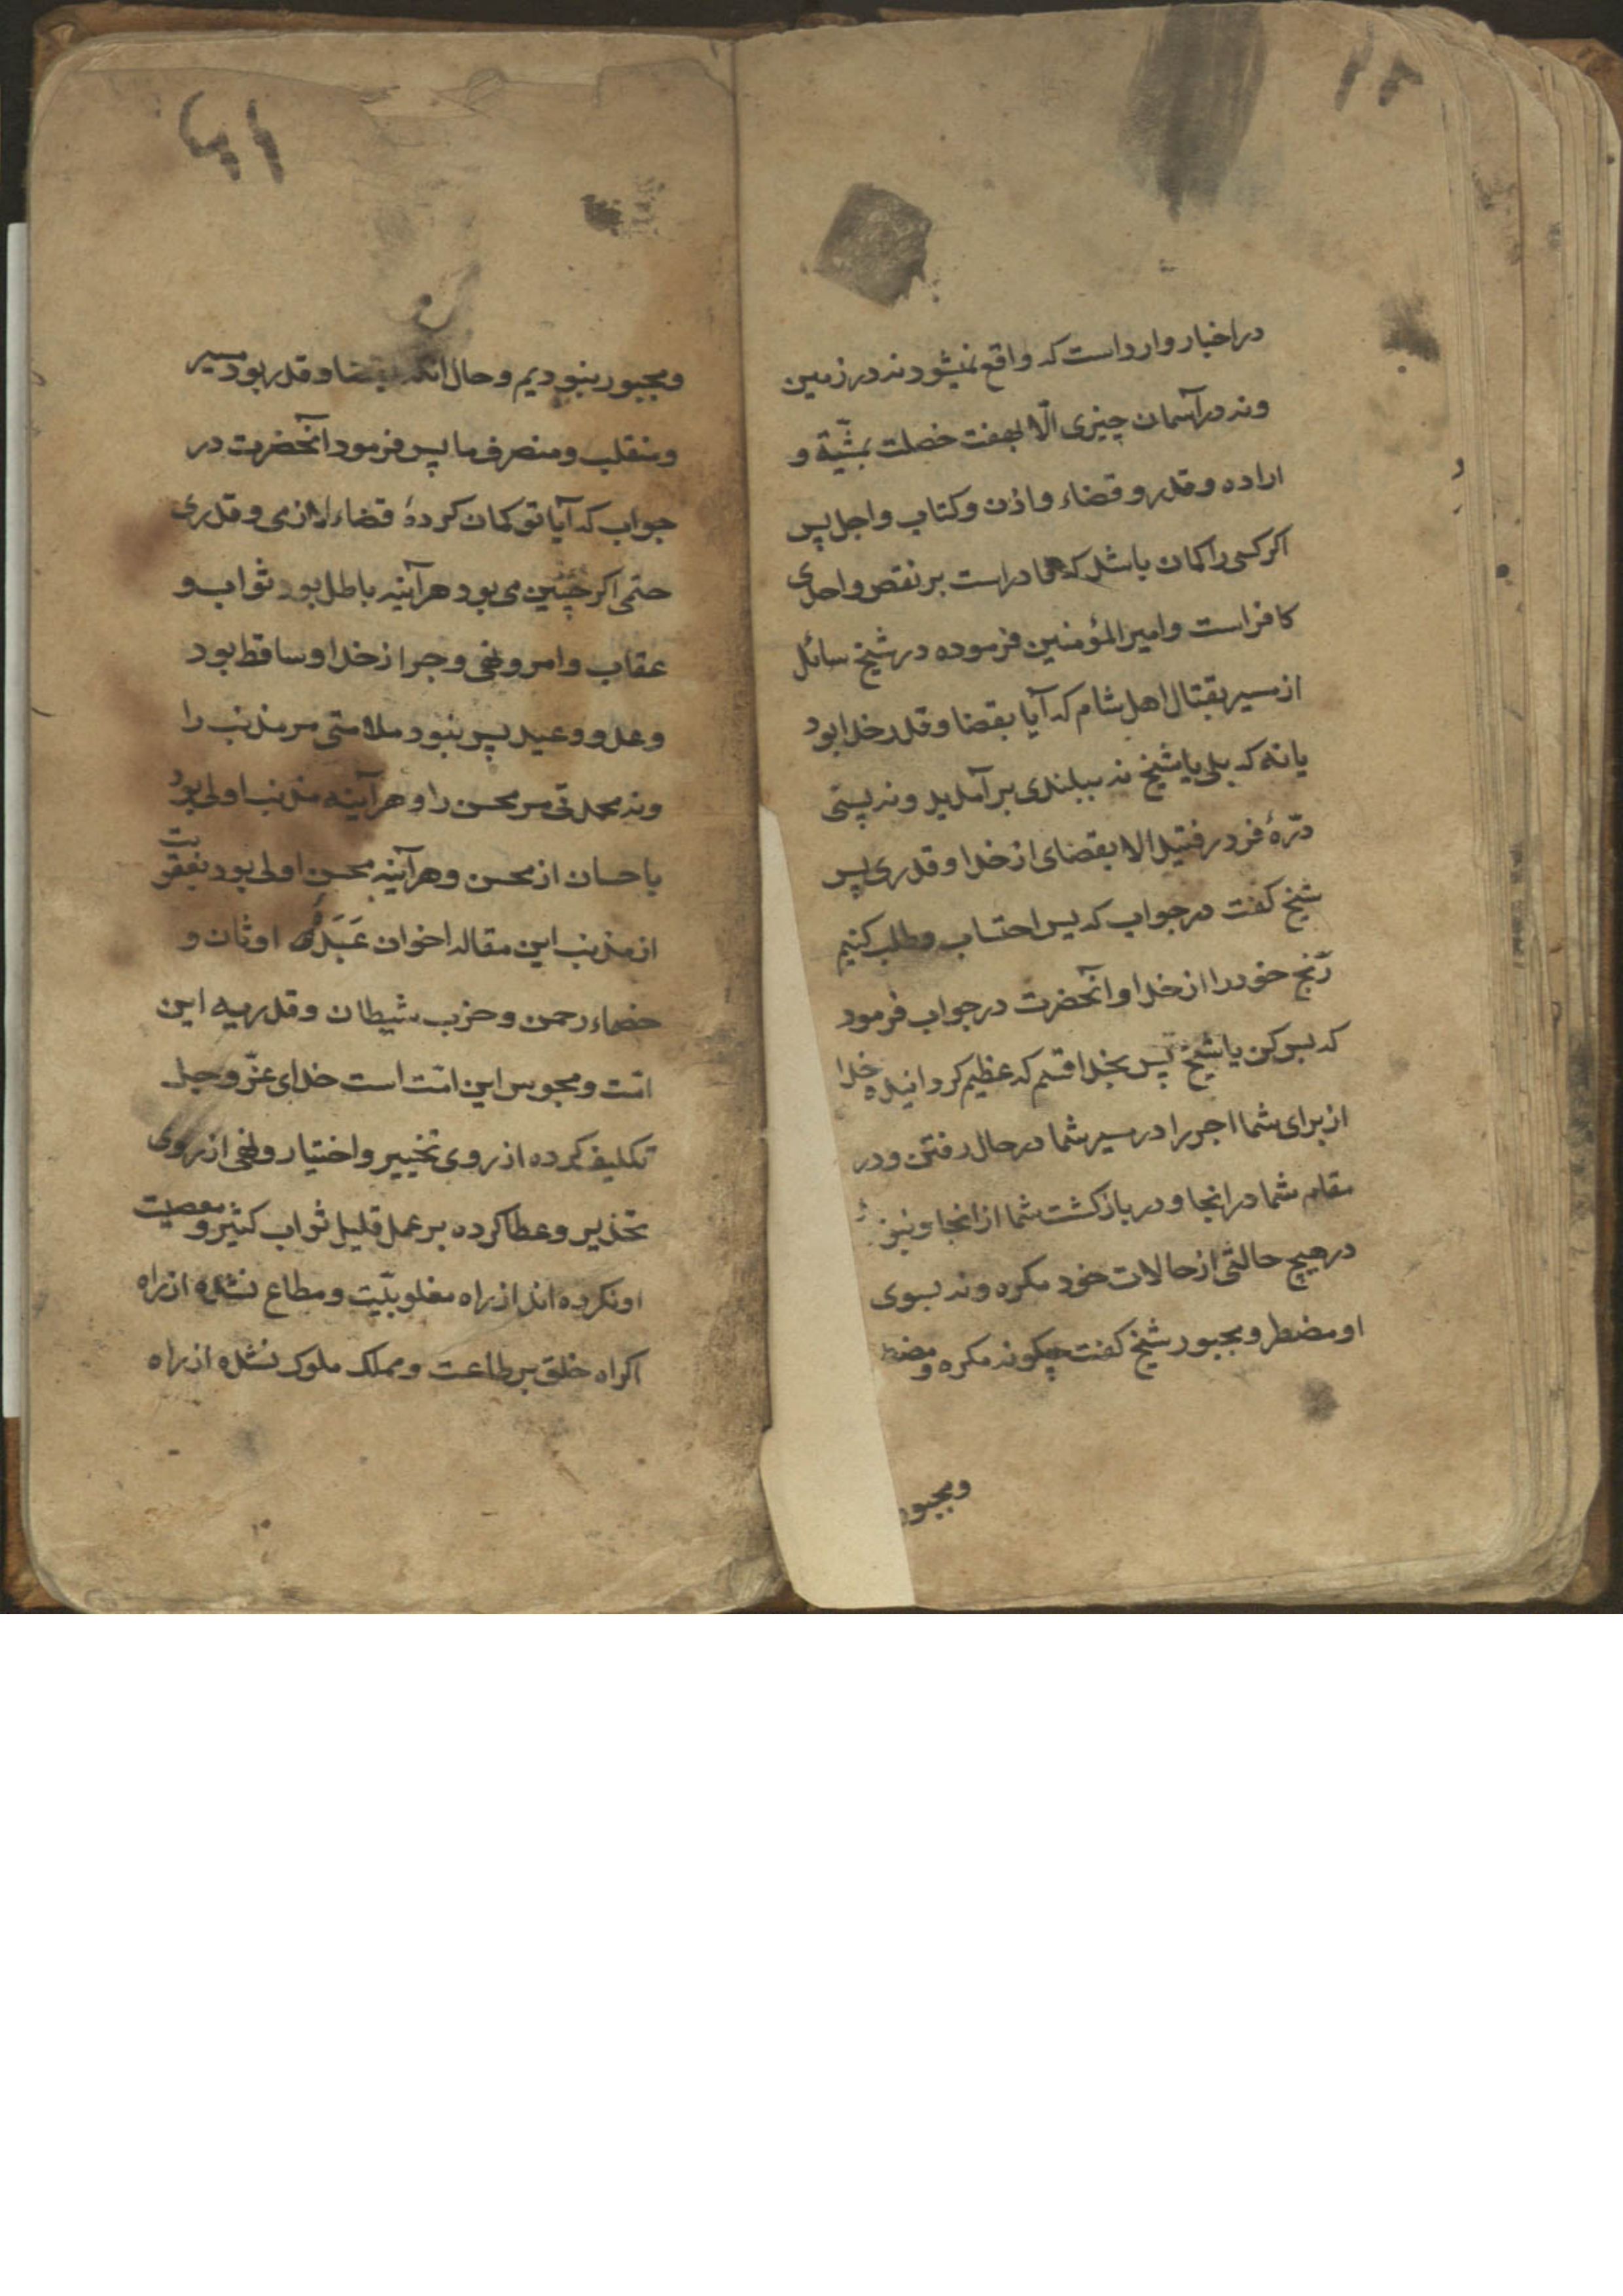 در اخبار وارد است که واقع نمیشود نه در زمین
و نه در آسمان چیزی الّا بهفت خصلت بمشیّة و
اراده و قدر و قضاء و اذن و کتاب و اجل پس
اکر کسی را کمان باشد که قادر است بر نقص واحدی
کافر است و امیر المؤمنین فرموده در شیخ سائل
از مسیر بقتال اهل شام که آیا بقضا و قدر خدا بود
یا نه که بلی یا شیخ نه ببلندی بر آمدید و نه پستی
درّهٔ فرو رفتید الا بقضای از خدا و قدری پس
شیخ کفت در جواب که پس احتساب و طلب کنیم
رنج خود را از خدا و آنحضرت در جواب فرمود
که بس کن یا شیخ پس بخدا قسم که عظیم کردانیده خدا
از برای شما اجر را در مسیر شما در حال رفتن و در
مقام شما در انجا و در باز کشت شما از انجا و نبود
در هیچ حالتی از حالات خود مکره و نه بسوی
او مضطر و مجبور شیخ کفت چکونه مکره و مضطر
و مجبور
و مجبور نبودیم و حال انکه بقضا و قدر بود مسیر
و منقلب و منصرف ما پس فرمود آنحضرت در
جواب که آیا تو کمان کردهٔ قضاء لازمی و قدری
حتمی اکر چنین می بود هرآینه باطل بود ثواب و
عقاب و امر و نهی و جر از خدا و ساقط بود
وعد و وعید پس نبود ملامتی مر مذنب را
و نه محمدتی مر محسن را و هرآینه مذنب اولی بود
باحسان از محسن و هرآینه محسن اولی بود بعقوبت
از مذنب این مقاله اخوان عَبَدَهٔ اوثان و
خصماء رحمن و حزب شیطان و قدریه این
امّت و مجوس این امّت است خدای عزّ و جل
تکلیف کرده از روی تخییر و اختیار و نهی از روی
تحذیر و عطا کرده بر عمل قلیل ثواب کثیر و معصیت
او نکرده اند از راه مغلوبیّت و مطاع نشده از راه
اکراه خلق بر طاعت و مملک ملوک نشده از راه